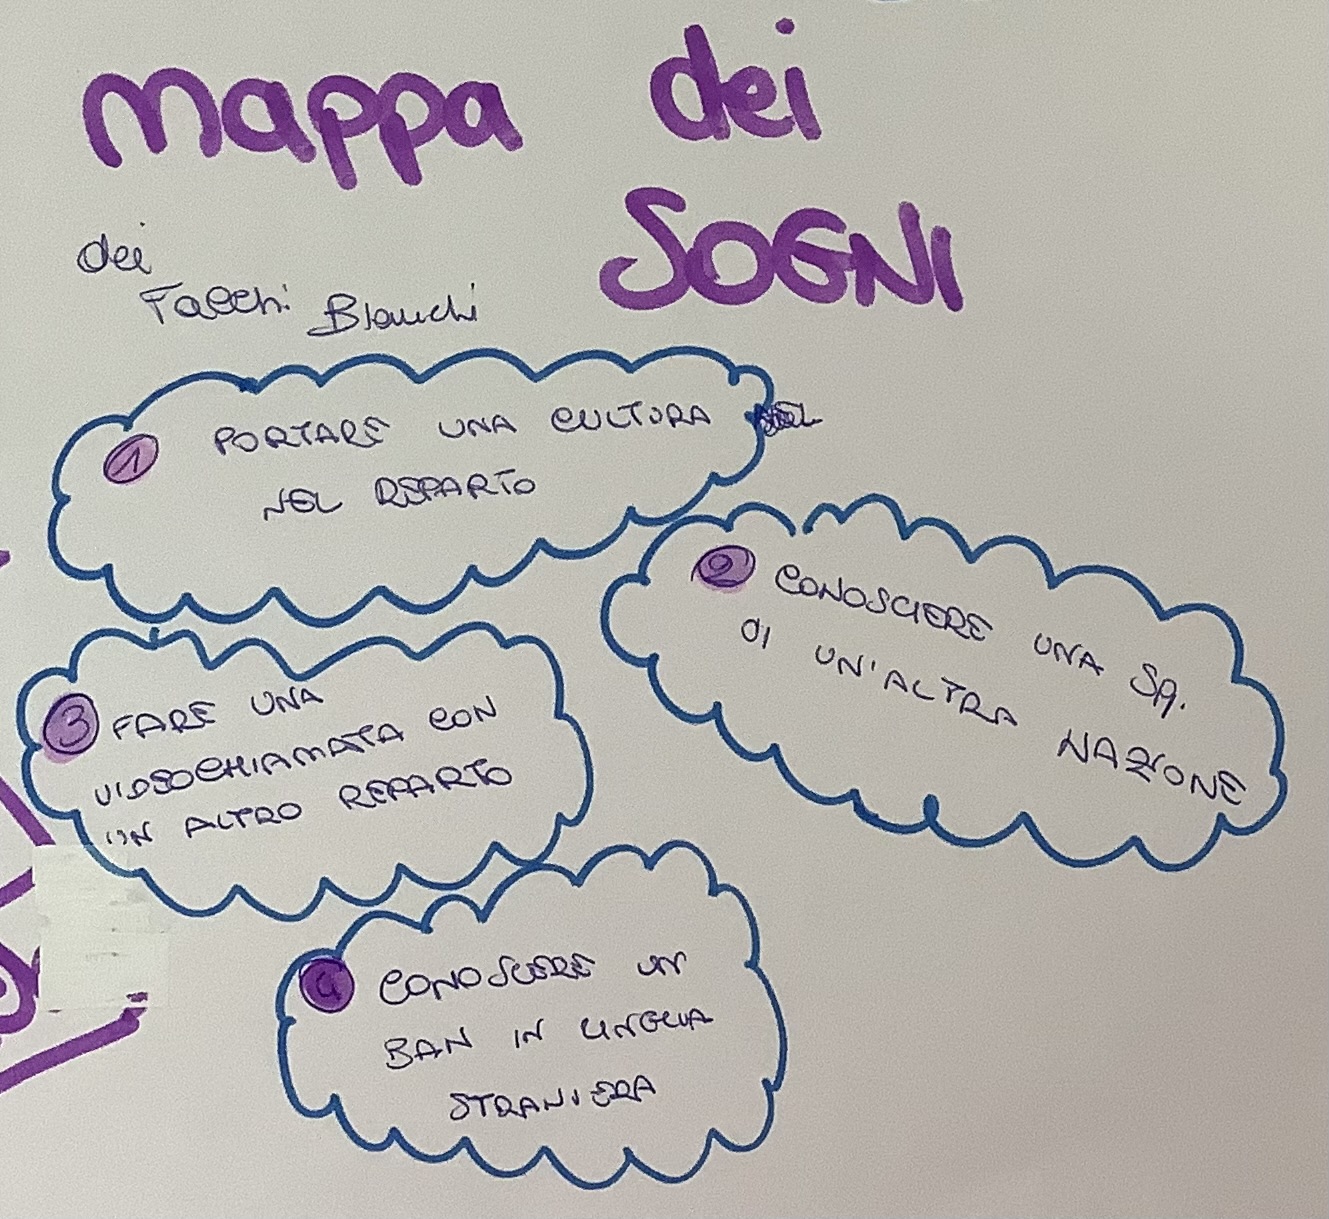 mappa dei
SOGNI
dei
Falchi Bianchi
1 PORTARE UNA CULTURA
NEL REPARTO
2 CONOSCIERE UNA SQ.
DI UN'ALTRA NAZIONE
3 FARE UNA
VIDEOCHIAMATA CON
UN ALTRO REPARTO
4 CONOSCERE UN
BAN IN LINGUA
STRANIERA